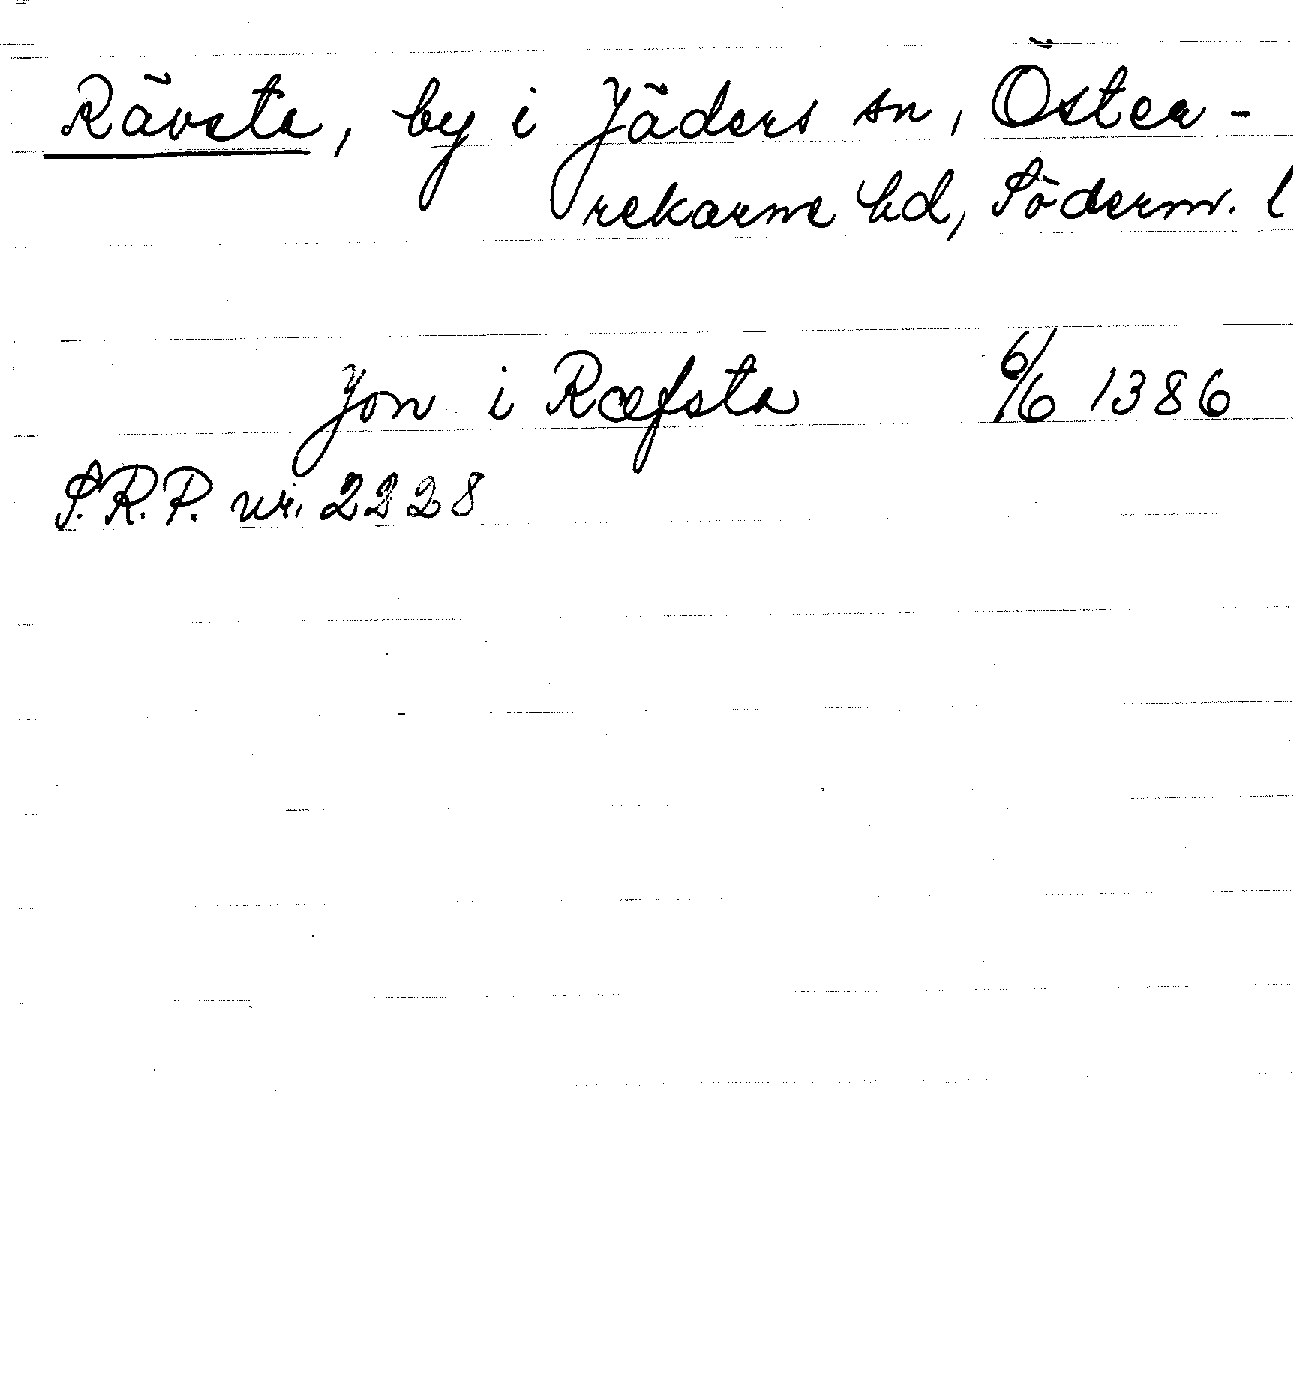 Rävsta, by i Jäders sn, Öster-
rekarne hd, Söderm. l
Jon i Ræfsta 6/6 1386
S.R.P. nr. 2228